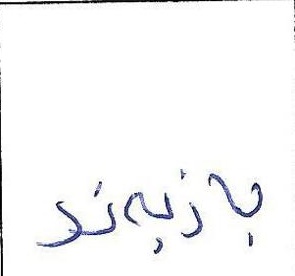 بازبەند